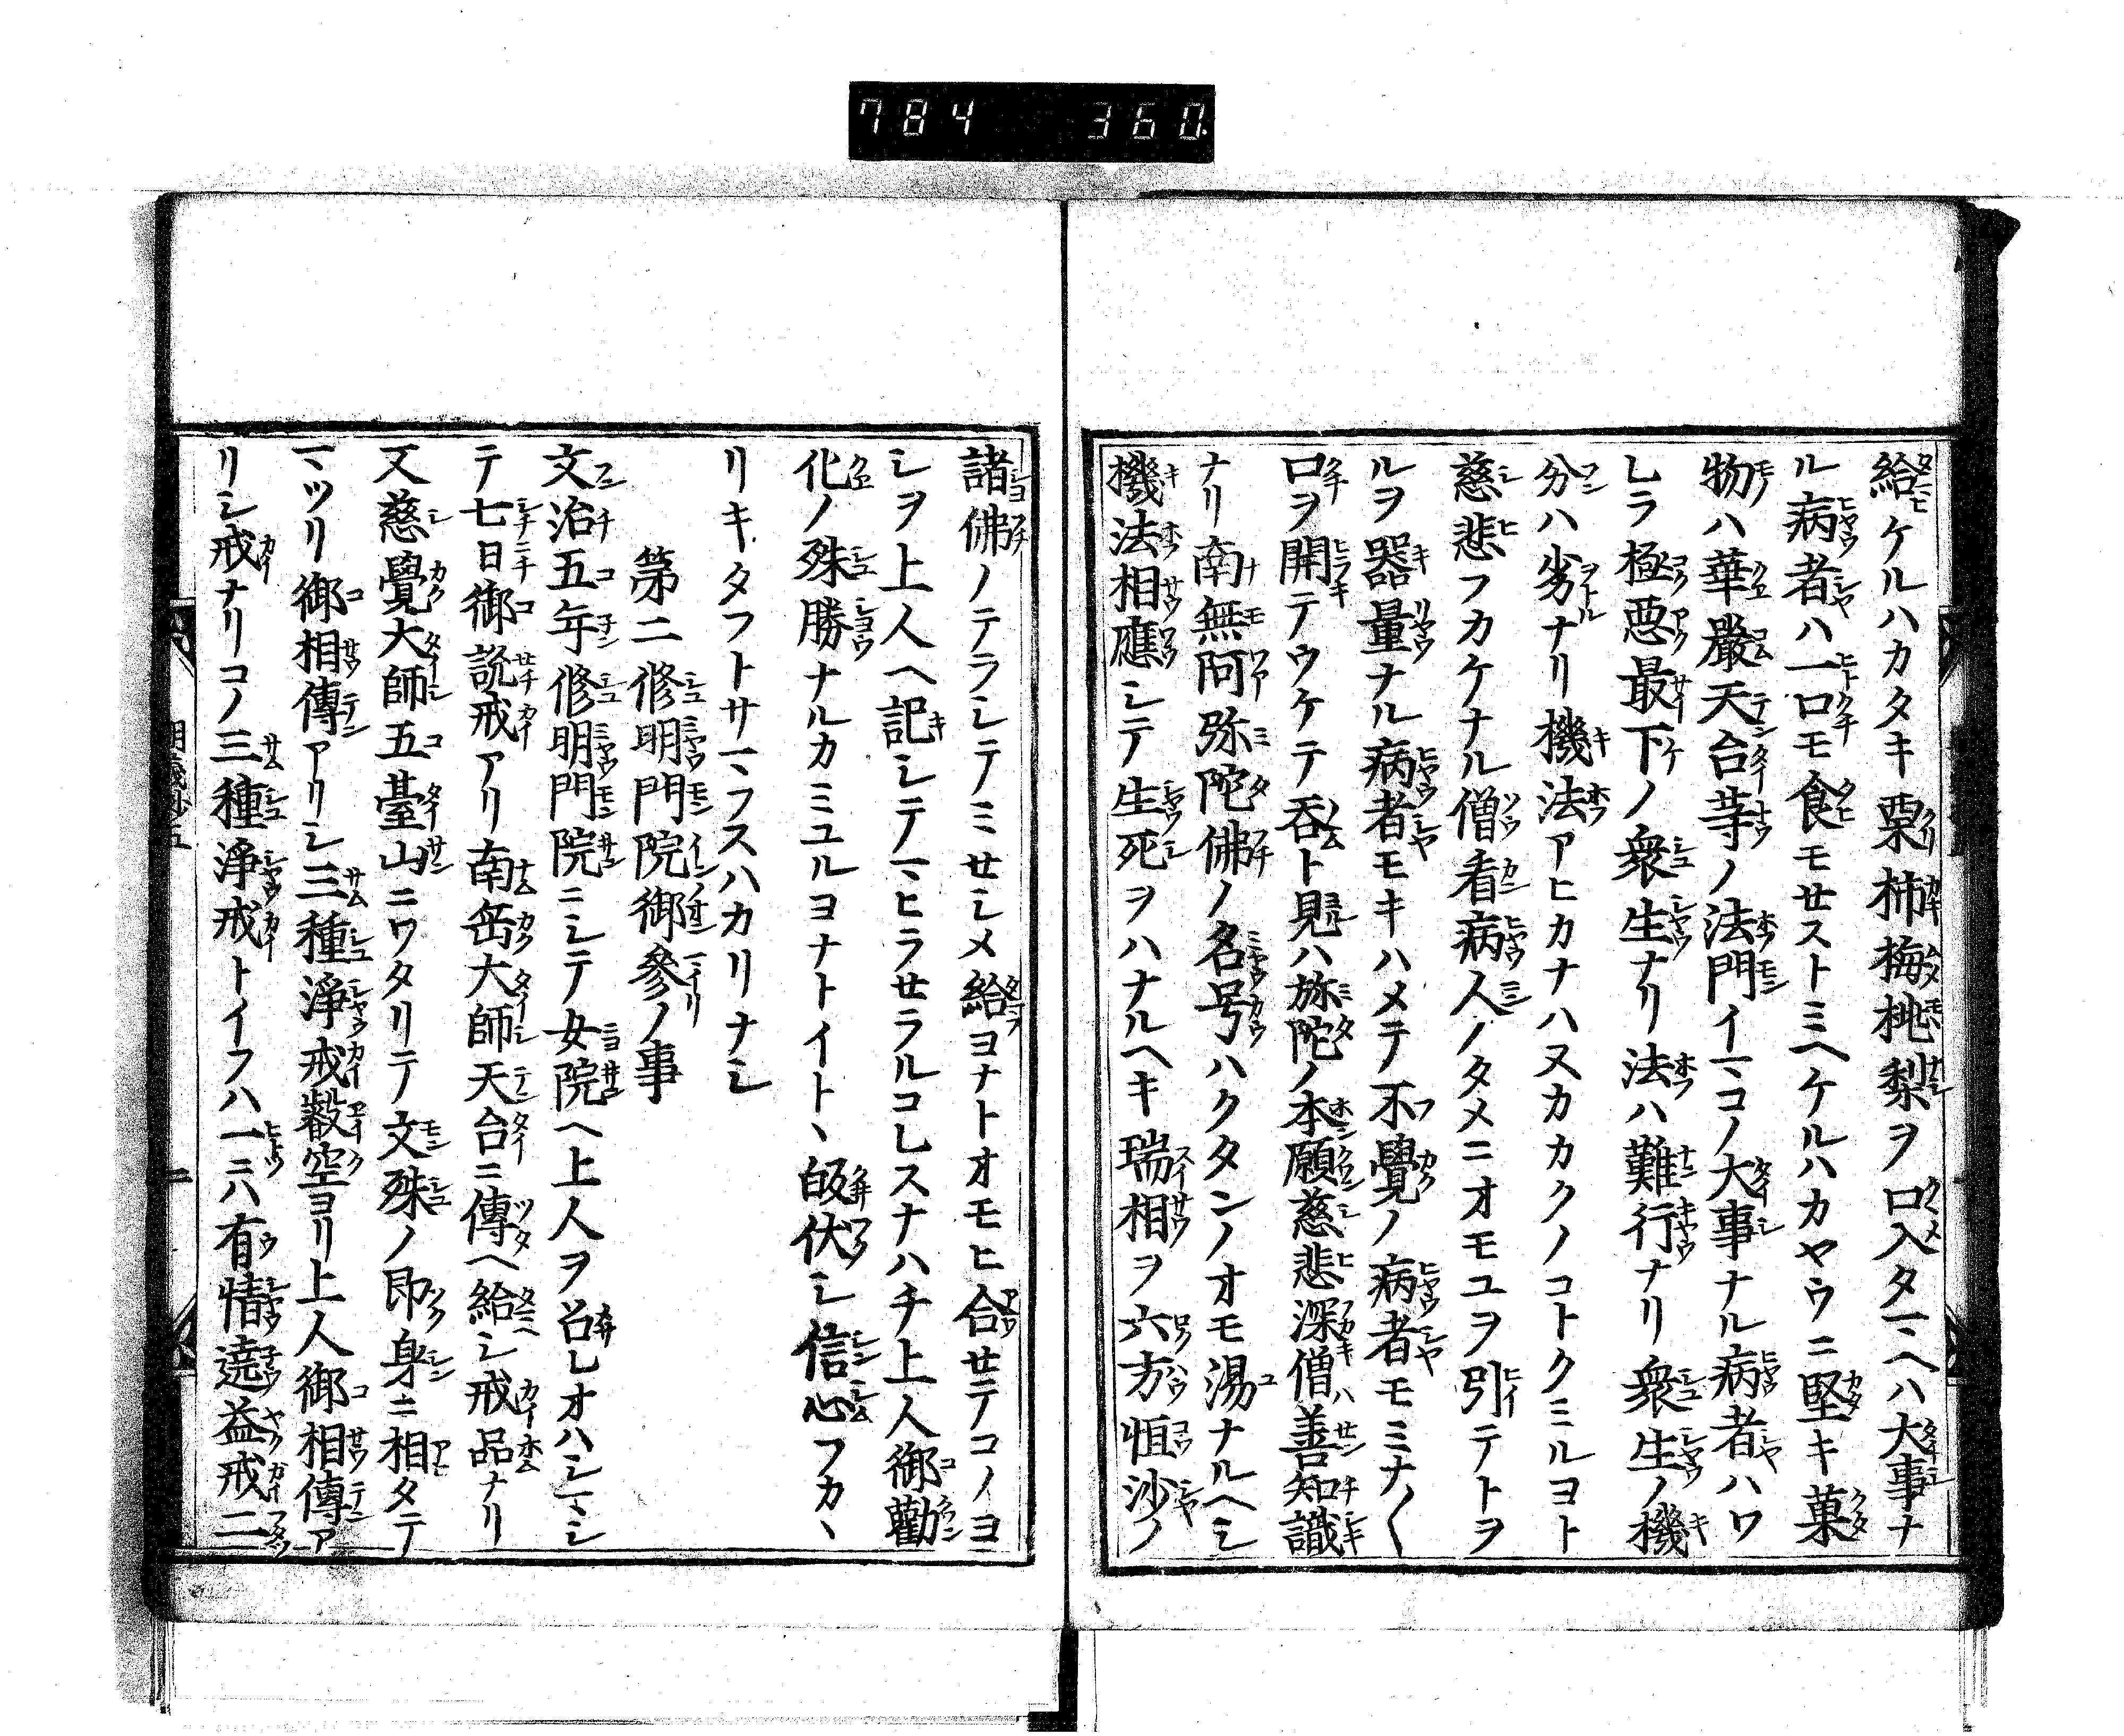 784 360
給ケルハカタキ栗柿梅桃梨ヲ口入タマヘハ大事ナ
ル病者ハ一口モ食モせストミヘケルハカヤウニ堅キ菓
物ハ華嚴天台等ノ法門イマコノ大事ナル病者ハワ
レラ極悪最下ノ衆生ナリ法ハ難行ナリ衆生ノ機
分ハ劣ナリ機法アヒカナハヌカカクノコトクミルヨト
慈悲フカケナル僧看病人ノタメニオモユヲ引テトヲ
ルヲ器量ナル病者モキハメテ不覺ノ病者モミナ〱
口ヲ開テウケテ呑ト見ハ弥陀ノ本願慈悲深僧善知識
ナリ南無阿弥陀佛ノ名号ハクタンノオモ湯ナルヘシ
機法相應シテ生死ヲハナルヘキ瑞相ヲ六方恒沙ノ
諸佛ノテラシテミせシメ給ヨナトオモヒ合せテコノヨ
シヲ上人ヘ記シテマヒラせラルコレスナハチ上人御勸
化ノ殊勝ナルカミユルヨナトイトヽ皈伏シ信心フカヽ
リキタフトサマフスハカリナシ
第二修明門院御參ノ事
文治五年修明門院ニシテ女院ヘ上人ヲ召シオハシマシ
テ七日御說戒アリ南岳大師天台ニ傳ヘ給シ戒品ナリ
又慈覺大師五臺山ニワタリテ文殊ノ即身ニ相タテ
マツリ御相傳アリシ三種淨戒叡空ヨリ上人御相傳ア
リシ戒ナリコノ三種淨戒トイフハ一ニハ有情遶益戒二